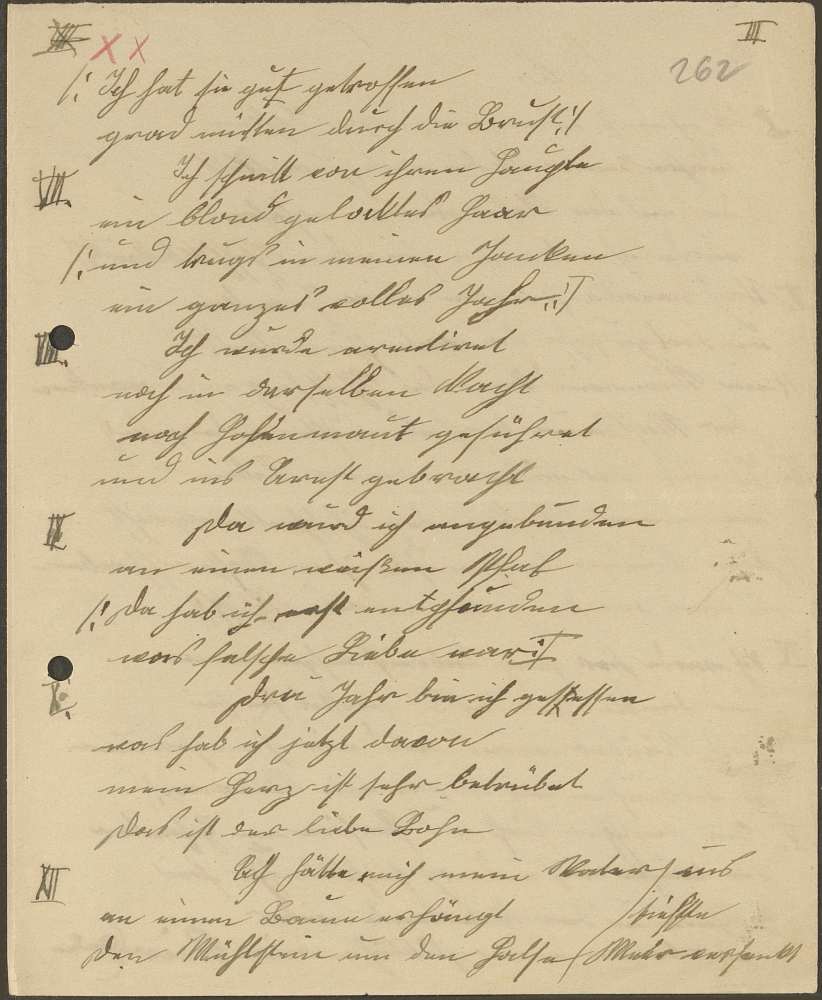 III
XX
262
/: Ich hat sie gut getroffen
grad mitten durch die Brust :/
VII.
Ich schnitt von ihrem Haupte
ein blond gelocktes Haar
/: und trugs in meinen Jancken
ein ganzes volles Jahr :/
VIII.
Ich wurde arentiret
noch in derselben Nacht
nach Hohenmaut geführet
und ins Arest gebracht
IX
Da wurd ich angebunden
an einen weißen Pfal
/: Da hab ich erst entpfunden
was falsche Liebe war :/
X.
Drei Jahr bin ich gesessen
was hab ich jetzt davon
mein Herz ist sehr betrübet
Das ist der liebe Lohn
XII
Ach hätte mich mein Vater / ins
an einen Baum erhängt / tiefste
Den Mühlstein um den Halse / Meer versenkt